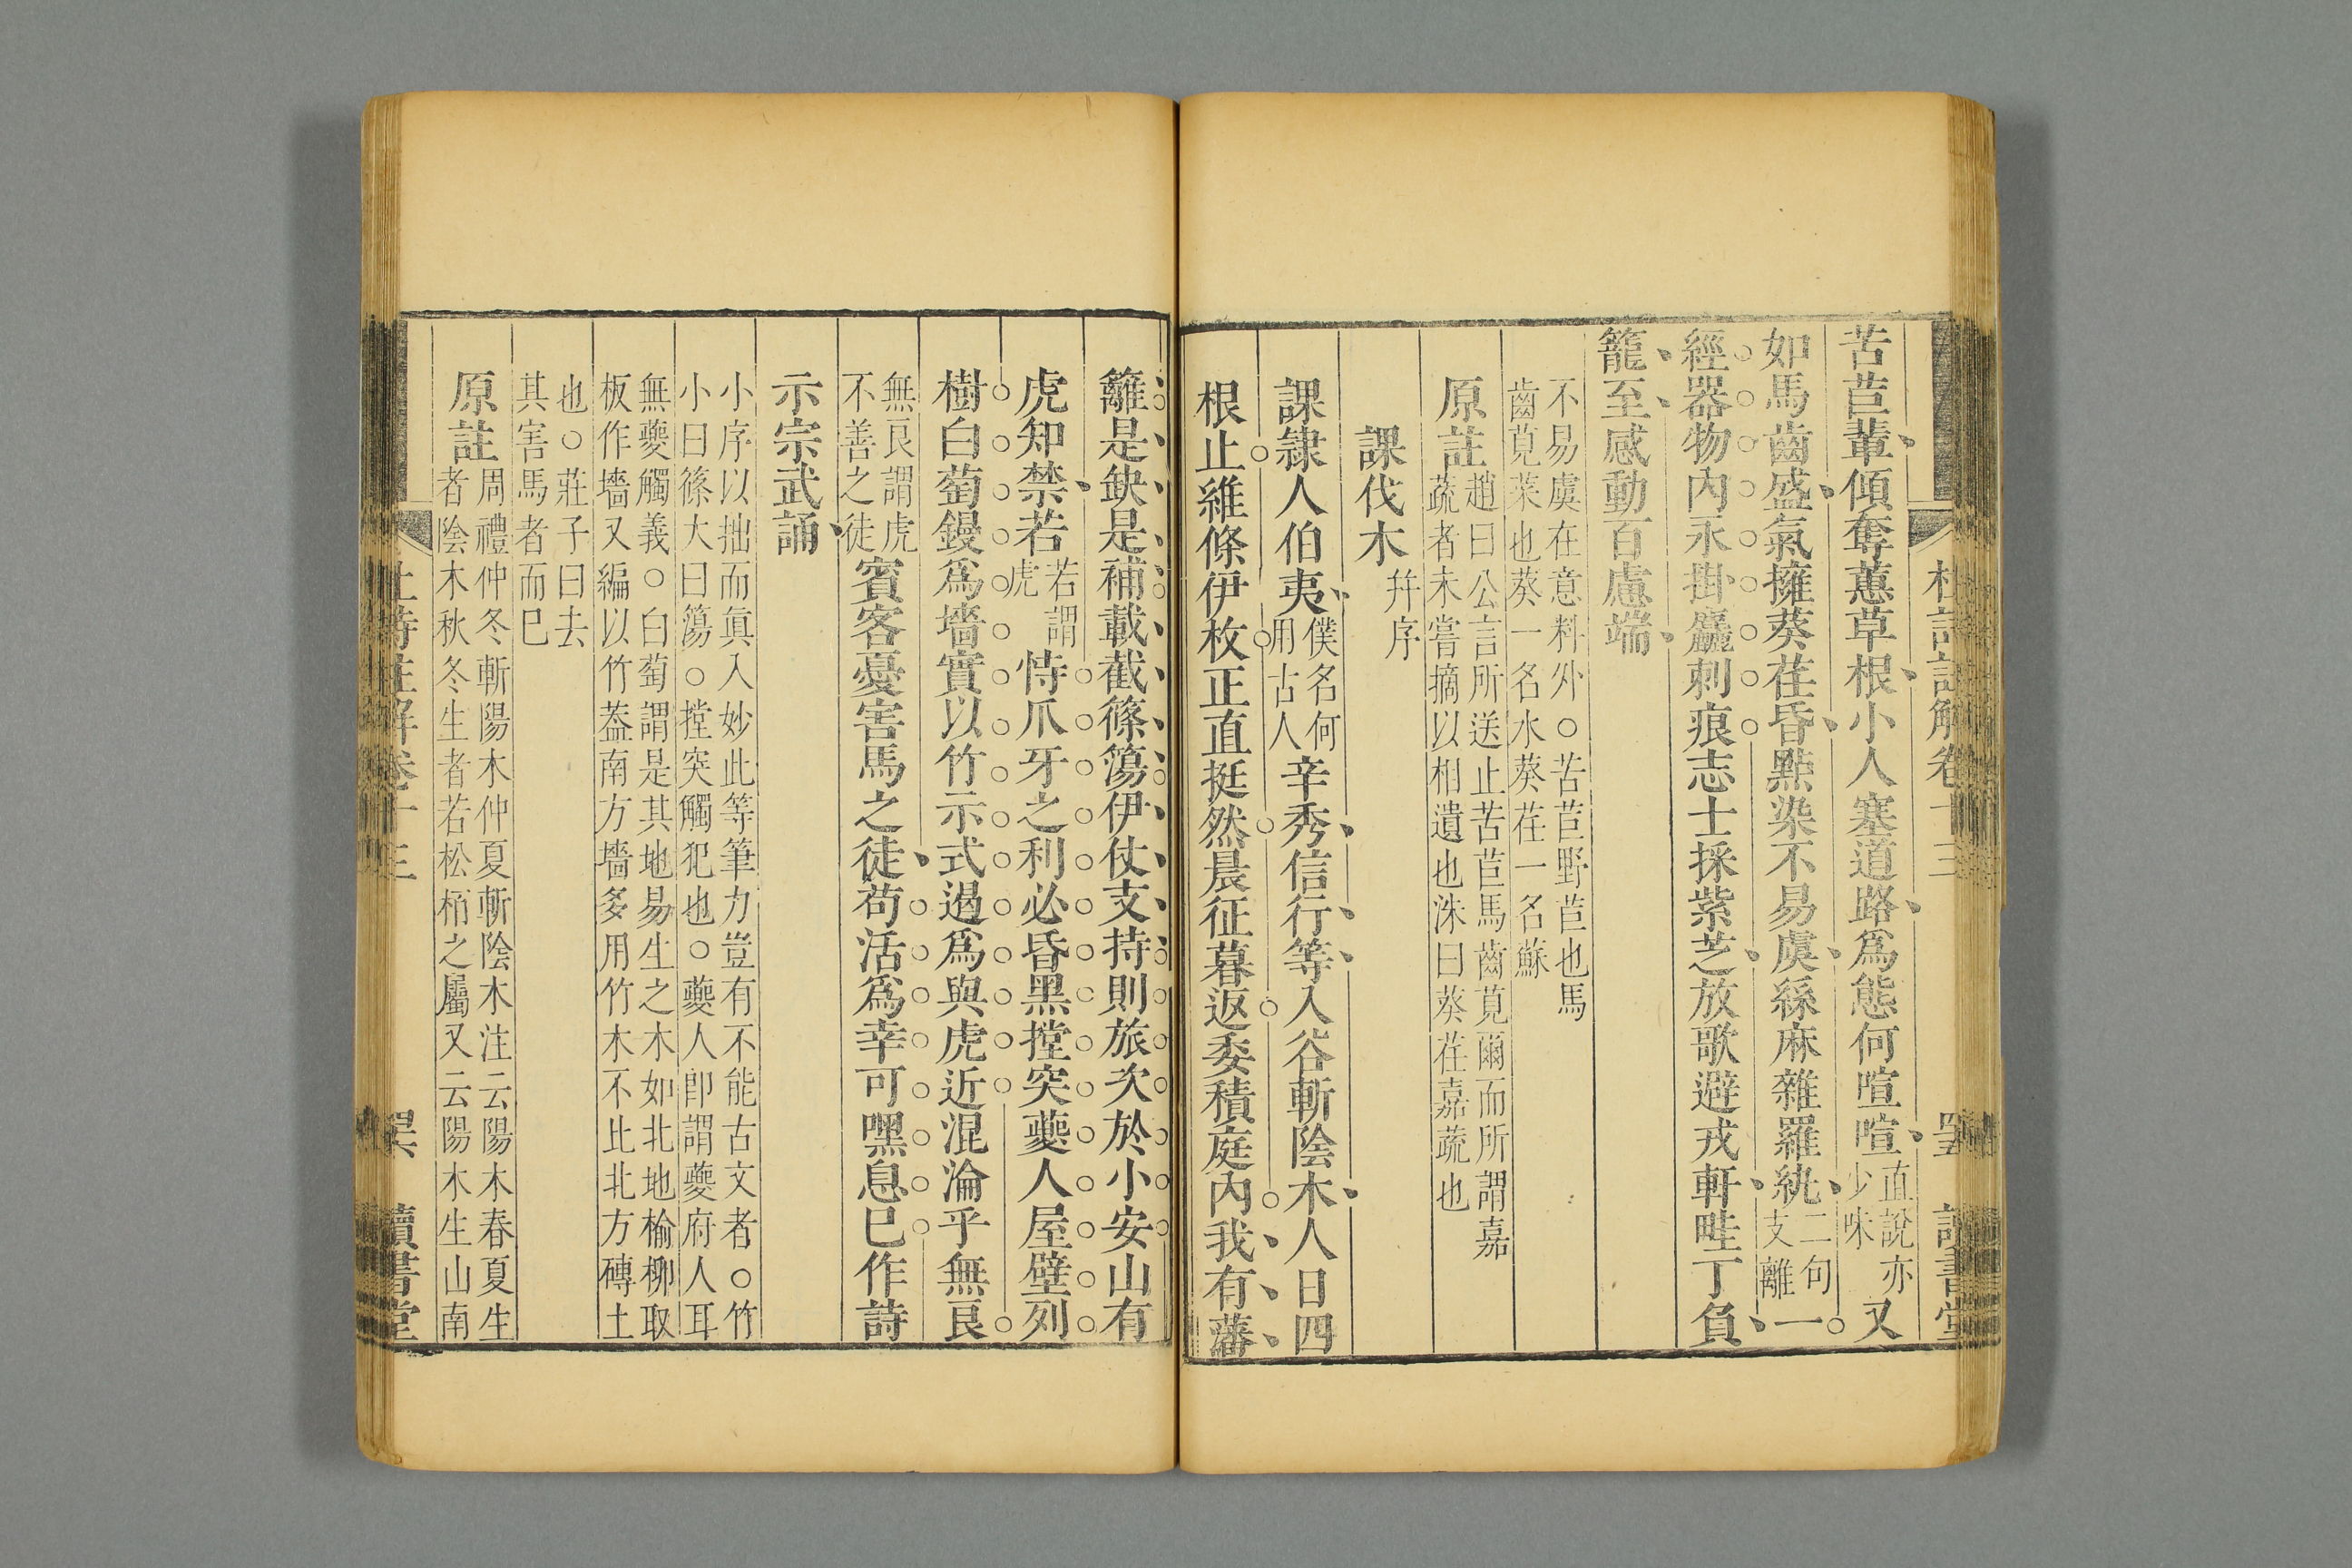 苦苣輩傾奪蕙草根小人塞道路爲態何喧喧直說亦少味又
如馬齒盛氣擁葵荏昏㸃染不易虞絲麻雜羅紈二句支離一
經器物內永掛麤刺痕志士採紫芝放歌避戎軒畦丁負
籠至感動百慮端
不易虞在意料外○苦苣野苣也馬
齒莧菜也葵一名水葵荏一名蘇
原註趙曰公言所送止苦苣馬齒莧爾而所謂嘉
蔬者未嘗摘以相遺也洙曰葵荏嘉蔬也
課伐木幷序
課隷人伯夷僕名何用古人辛秀信行等入谷斬陰木人日四
根止維條伊枚正直挺然晨征暮返委積庭內我有藩
籬是缺是補載截篠簜伊仗支持則旅次於小安山有
虎知禁若若謂虎恃爪牙之利必昏黑摚突夔人屋壁列
樹白萄鏝爲墻實以竹示式遏爲與虎近混淪乎無良
無良謂虎不善之徒賓客憂害馬之徒苟活爲幸可嘿息巳作詩
示宗武誦
小序以拙而眞入妙此等筆力豈有不能古文者○竹
小曰篠大曰簜○摚突觸犯也○夔人卽謂夔府人耳
無夔觸義○白萄謂是其地易生之木如北地榆柳取
板作墻又編以竹葢南方墻多用竹木不比北方磚土
也○莊子曰去
其害馬者而巳
原註周禮仲冬斬陽木仲夏斬陰木注云陽木春夏生
者陰木秋冬生者若松栢之屬又云陽木生山南